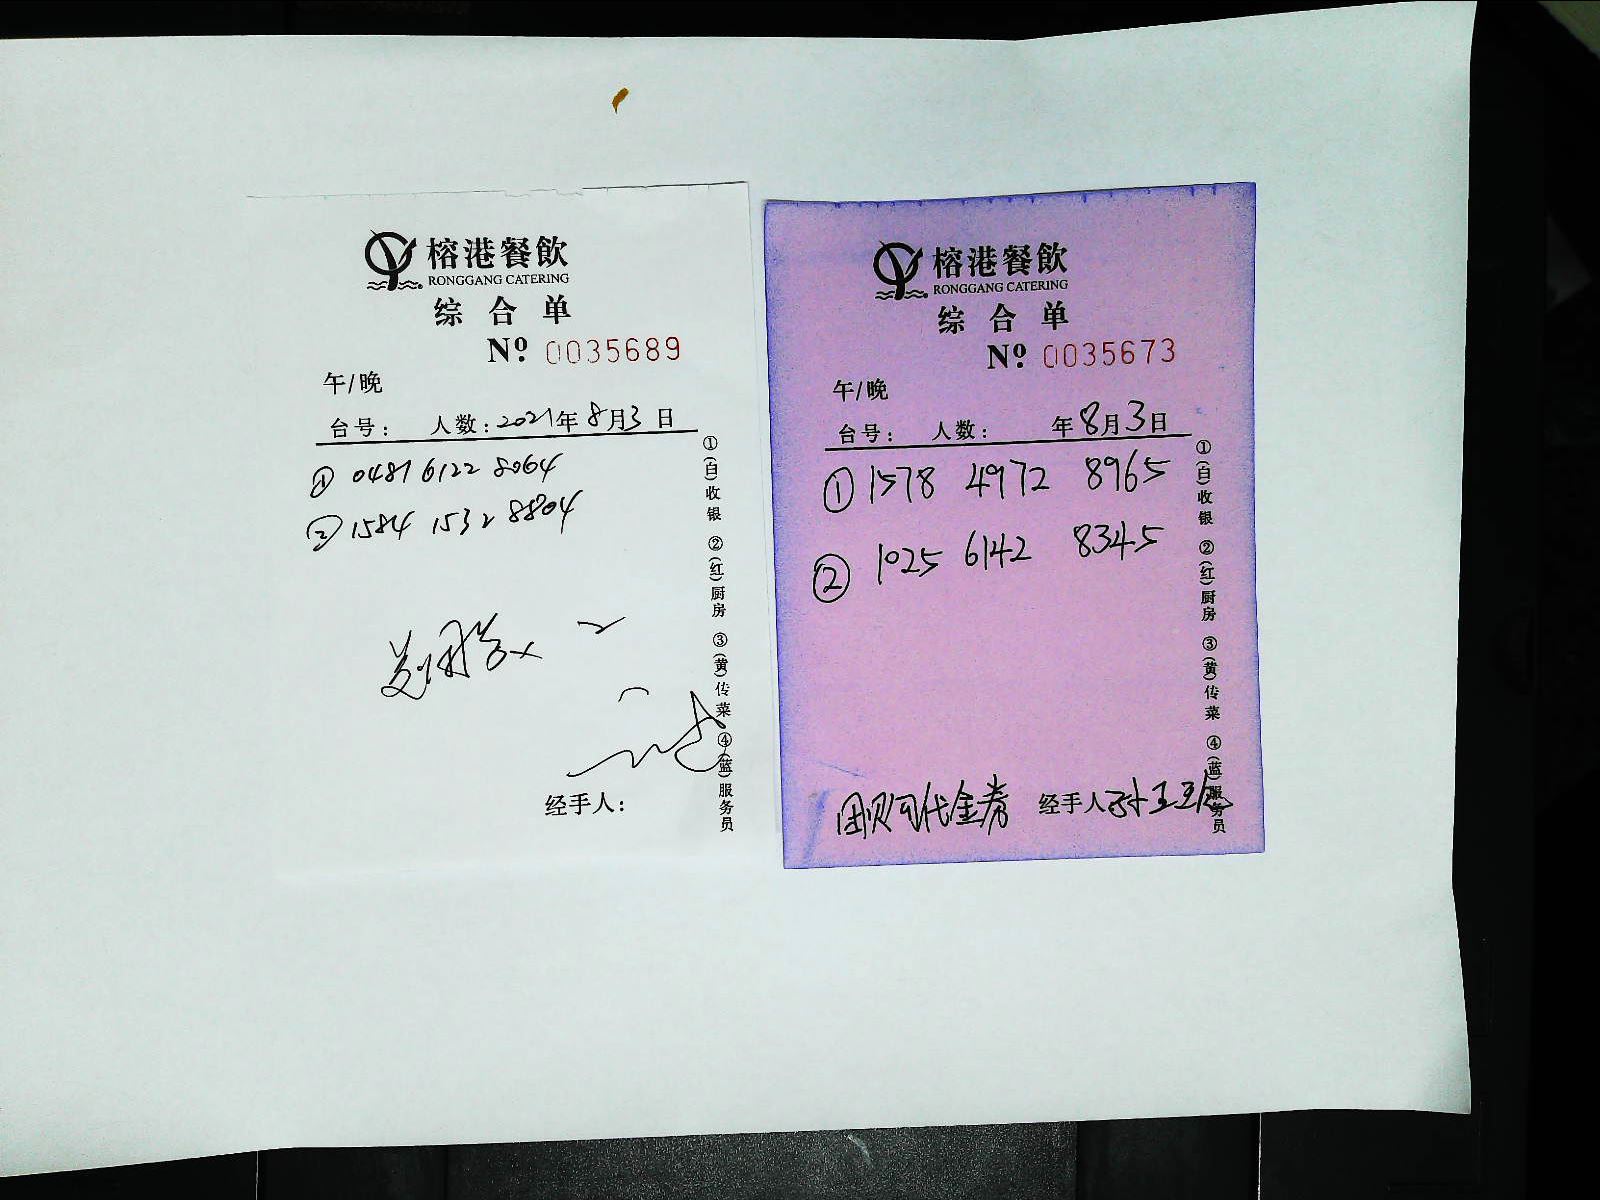 榕港餐飲
RONGGANG CATERING
综合单
Nº 0035689
午/晚
台号: 人数: 2021年8月3日
① 0481 6122 8064
② 1584 1532 8804
经手人:
①(白)收银 ②(红)厨房 ③(黄)传菜 ④(蓝)服务员
榕港餐飲
RONGGANG CATERING
综合单
Nº 0035673
午/晚
台号: 人数: 年8月3日
① 1578 4972 8965
② 1025 6142 8345
团购代金券 经手人
①(白)收银 ②(红)厨房 ③(黄)传菜 ④(蓝)服务员